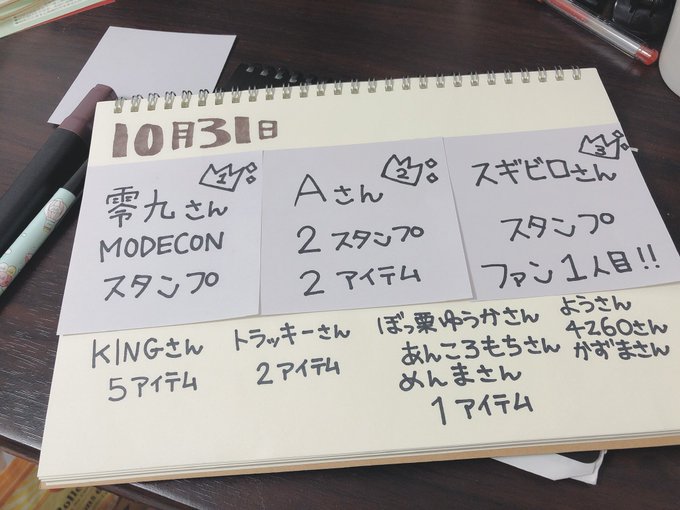 10月31日
1
零九さん
MODECON
スタンプ
2
Aさん
2 スタンプ
2 アイテム
3
スギビロさん
スタンプ
ファン1人目!!
KINGさん
5アイテム
トラッキーさん
2アイテム
ぼっ粟ゆうかさん
あんころもちさん
めんまさん
1アイテム
ようさん
4260さん
かずまさん